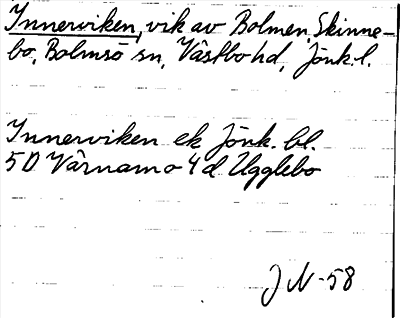 Innerviken, vik av Bolmen, Skinne-
bo, Bolmsö sn, Västbo hd, Jönk. l.
Innerviken ek Jönk. bl.
5 D Värnamo 4 d Ugglebo
JN -58